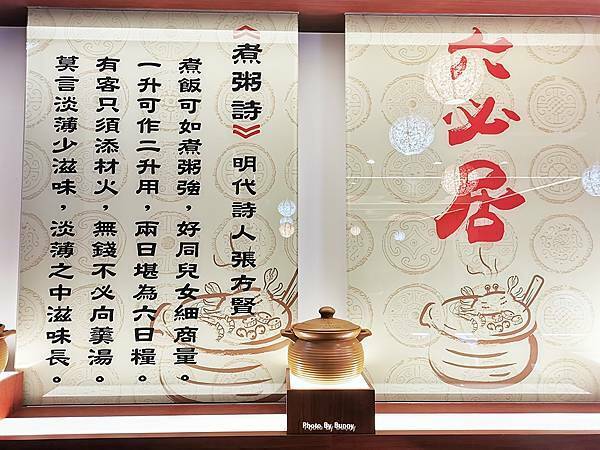 六必居
《煮粥詩》 明代詩人 張方賢
煮飯可如煮粥強，好同兒女細商量。
一升可作二升用，兩日堪為六日糧。
有客只須添材火，無錢不必向羹湯。
莫言淡薄少滋味，淡薄之中滋味長。
Photo By Bunny